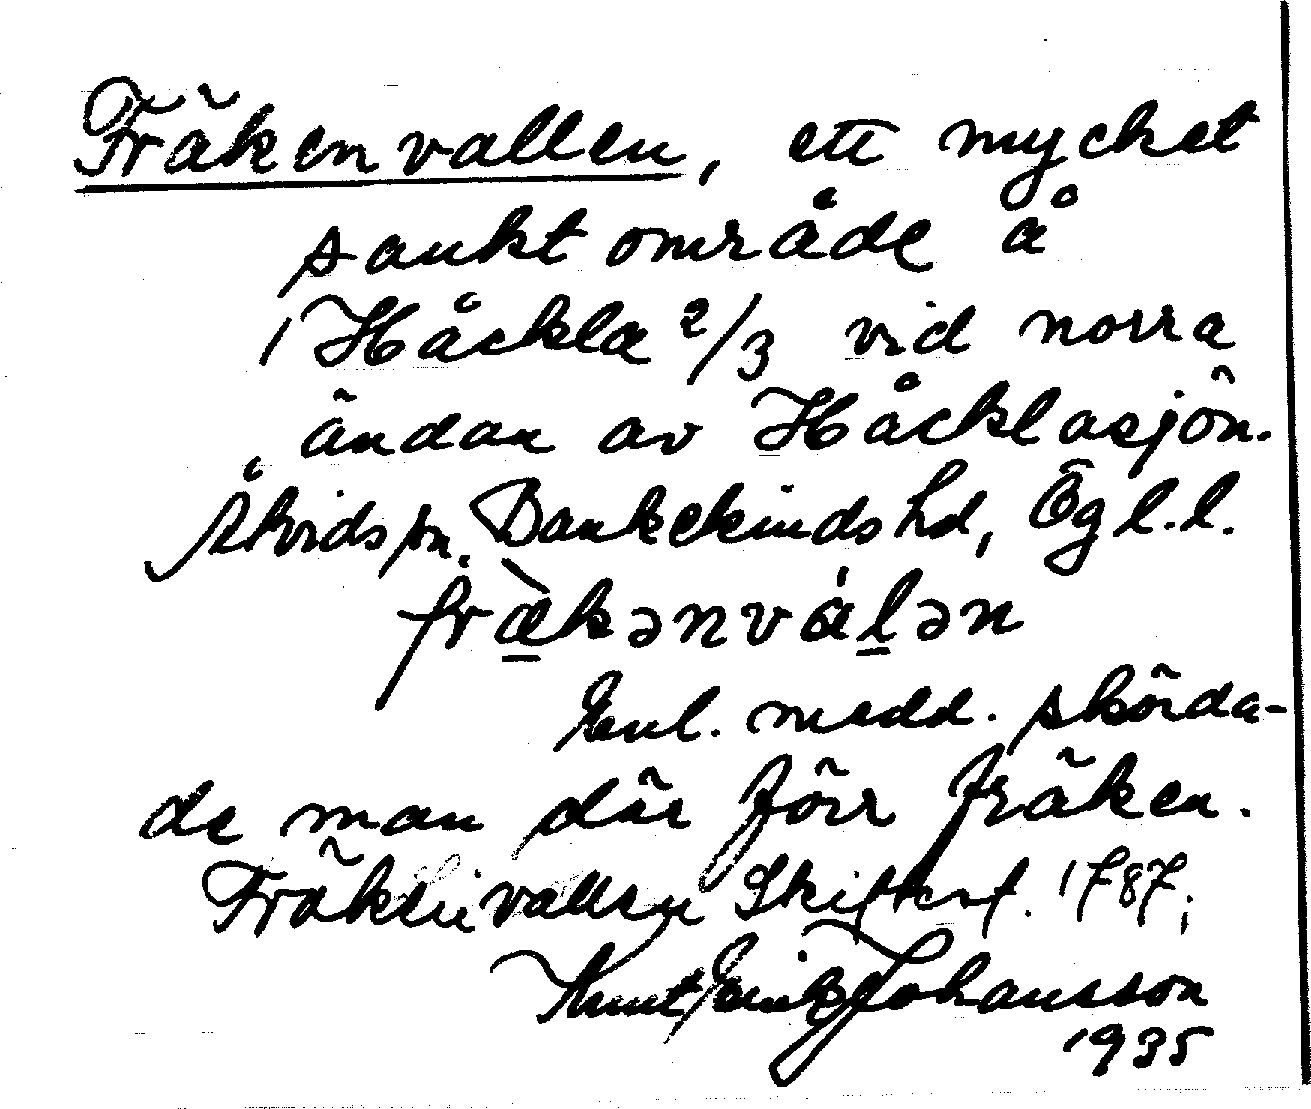 Fräkenvallen, ett mycket
sankt område å
Håckla 2/3 vid norra
ändan av Håcklasjön.
Åtvids sn. Bankekinds hd, Ög l.l.
fræ̀kənválən
Enl. medd. skörda-
de man där förr fräken.
Fräkenvallen Skifteskt. 1787;
Knut Erik Johansson
1935